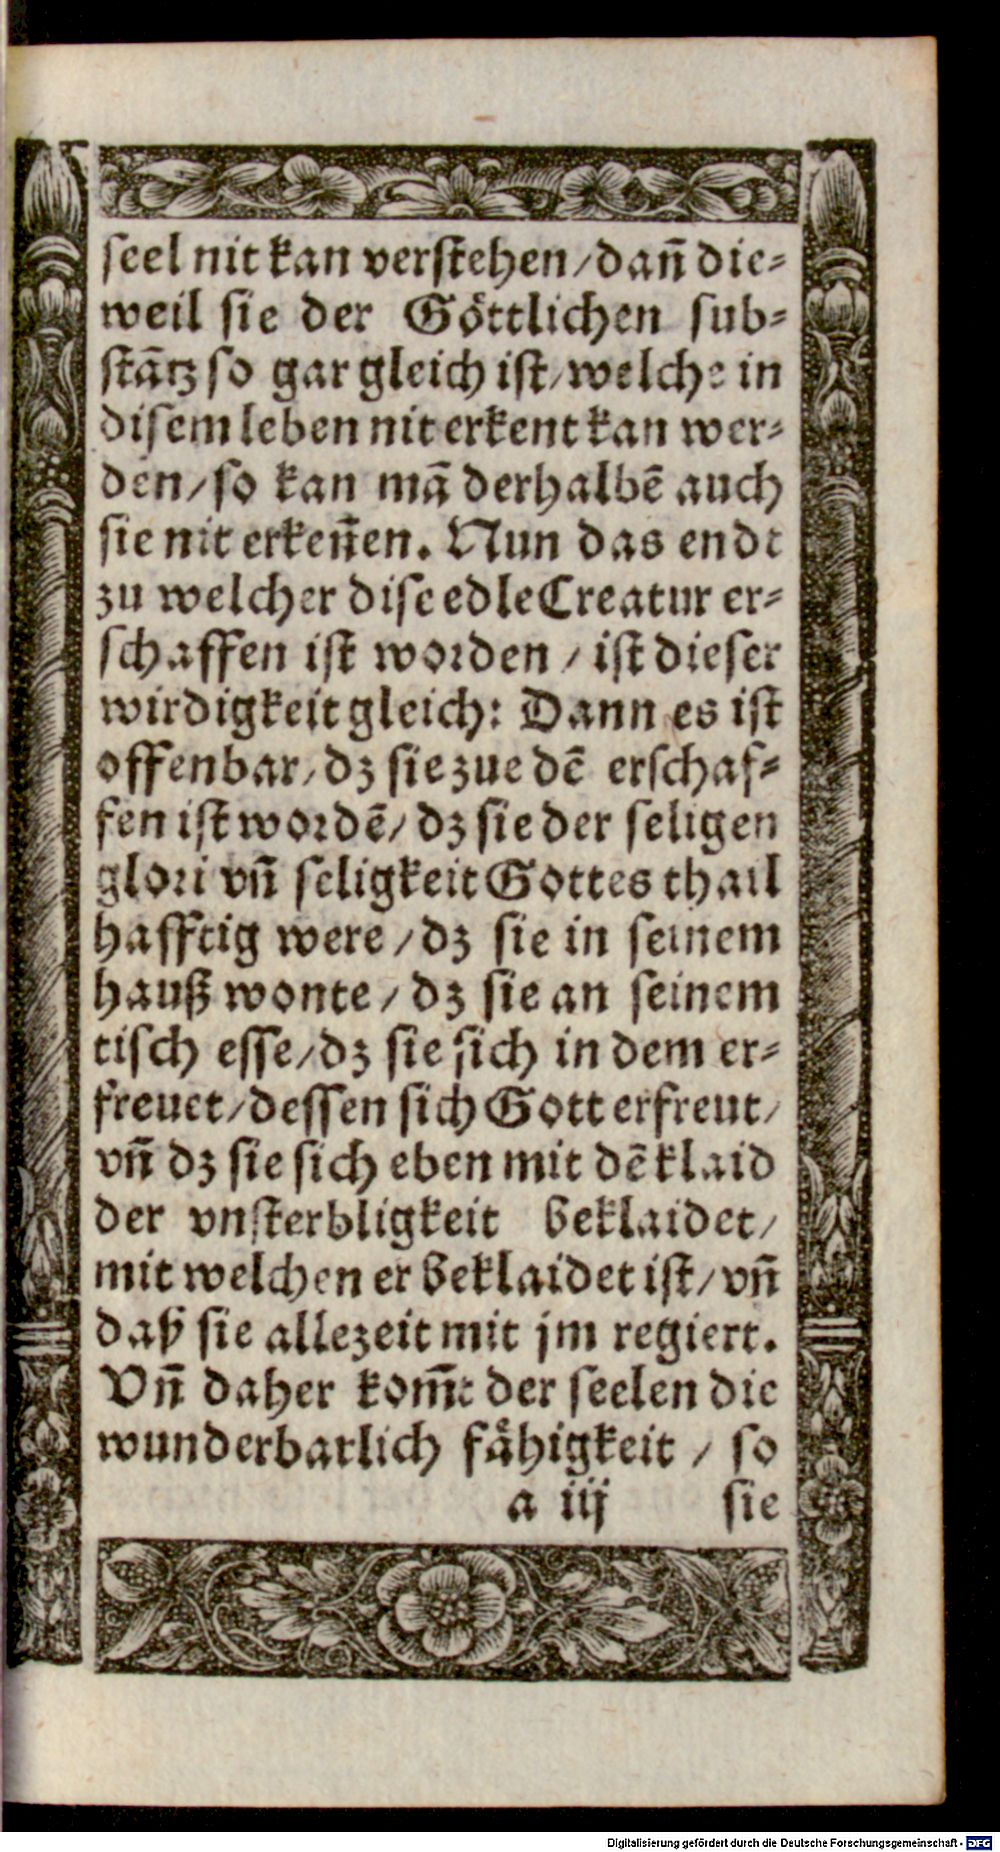 seel nit kan verstehen/dañ die⸗
weil sie der Göttlichen sub⸗
stātz so gar gleich ist/welche in
disem leben nit erkent kan wer⸗
den/so kan mā derhalbē auch
sie nit erkeñen. Nun das endt
zu welcher dise edle Creatur er⸗
schaffen ist worden / ist dieser
wirdigkeit gleich: Dann es ist
offenbar/dz sie zue dē erschaf⸗
fen ist wordē/ dz sie der seligen
glori vñ seligkeit Gottes thail
hafftig were /dz sie in seinem
hauß wonte / dz sie an seinem
tisch esse/dz sie sich in dem er⸗
frewet/dessen sich Gott erfreut/
vñ dz sie sich eben mit dē klaid
der vnsterbligkeit beklaidet/
mit welchen er beklaidet ist/vñ
daß sie allezeit mit jm regiert.
Vñ daher kom̄t der seelen die
wunderbarlich fähigkeit / so
a iij sie
Digitalisierung gefördert durch die Deutsche Forschungsgemeinschaft - DFG